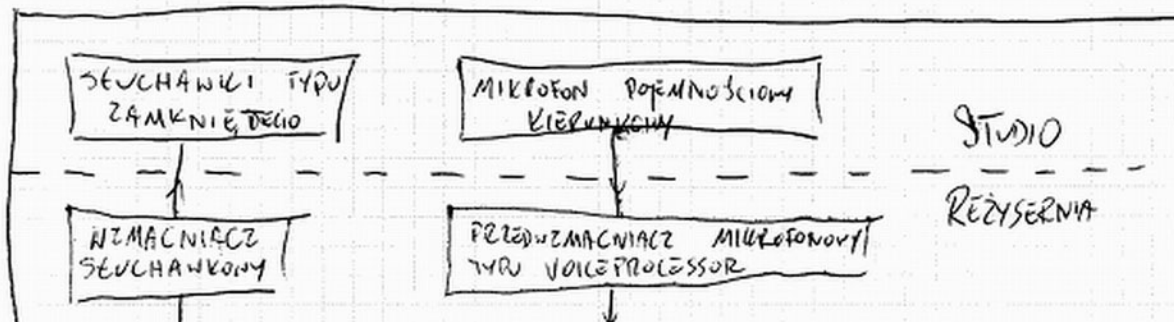 SŁUCHAWKI TYPU
ZAMKNIĘTEGO
MIKROFON POJEMNOŚCIOWY
KIERUNKOWY
STUDIO
REŻYSERNIA
WZMACNIACZ
SŁUCHAWKOWY
PRZEDWZMACNIACZ MIKROFONOWY
TYPU VOICEPROCESSOR